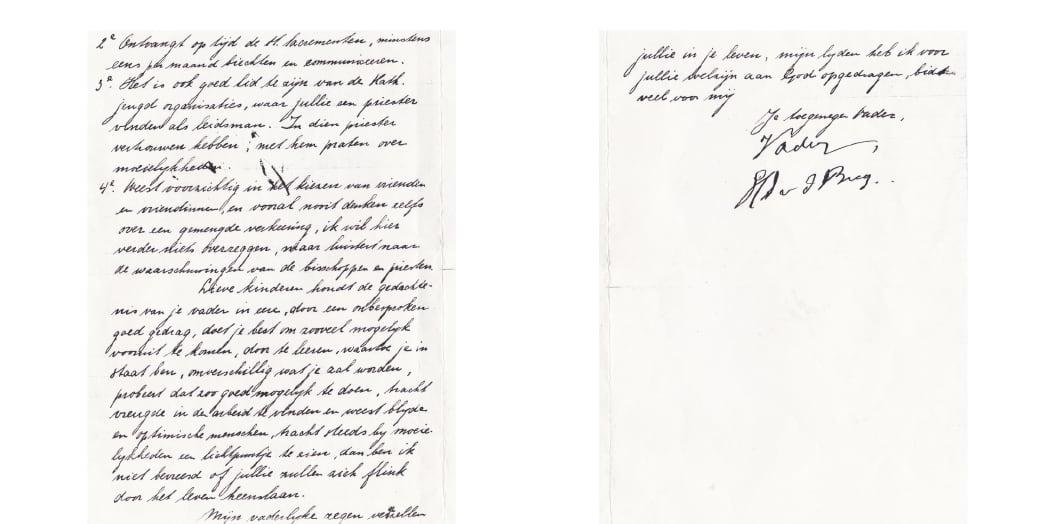 2e Ontvangt op tijd de H. Sacrementen, minstens
eens per maand biechten en communiceren.
3e. Het is ook goed lid te zijn van de Kath.
jeugd organisaties, waar jullie een priester
vinden als leidsman. In dien priester
vertrouwen hebben; met hem praten over
moeielykheden.
4e. Weest voorzichtig in het kiezen van vrienden
en vriendinnen, en vooral nooit denken zelfs
over een gemengde verkeering, ik wil hier
verder niets overzeggen, maar luistert naar
de waarschuwingen van de bisschoppen en priesters
Lieve kinderen houdt de gedachte-
nis van je vader in eere, door een onbesproken
goed gedrag, doet je best om zooveel mogelyk
vooruit te komen, door te leeren, waartoe je in
staat ben, onverschillig wat je zal worden,
probeert dat zoo goed mogelyk te doen, tracht
vreugde in de arbeid te vinden en weest blyde
en optimische menschen, tracht steeds by moeie-
lykheden een lichtpuntje te zien, dan ben ik
niet bevreesd of jullie zullen zich flink
door het leven heenslaan.
Mijn vaderlyke zegen verzellen
jullie in je leven, mijn lyden heb ik voor
jullie welzijn aan God opgedragen, bidt
veel voor mij
Je toegenegen Vader,
Vader,